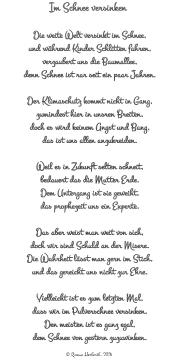 Im Schnee versinken
Die weite Welt versinkt im Schnee,
und während Kinder Schlitten fahren,
verzaubert uns die Baumallee,
denn Schnee ist rar seit ein paar Jahren.
Der Klimaschutz kommt nicht in Gang,
zumindest hier in unsren Breiten,
doch es wird keinem Angst und Bang,
das ist uns allen anzukreiden.
Weil es in Zukunft selten schneit,
bedauert das die Mutter Erde.
Dem Untergang ist sie geweiht,
das prophezeit uns ein Experte.
Das aber weist man weit von sich,
doch wir sind Schuld an der Misere.
Die Wahrheit lässt man gern im Stich,
und das gereicht uns nicht zur Ehre.
Vielleicht ist es zum letzten Mal,
dass wir im Pulverschnee versinken.
Den meisten ist es ganz egal,
dem Schnee von gestern zuzuwinken.